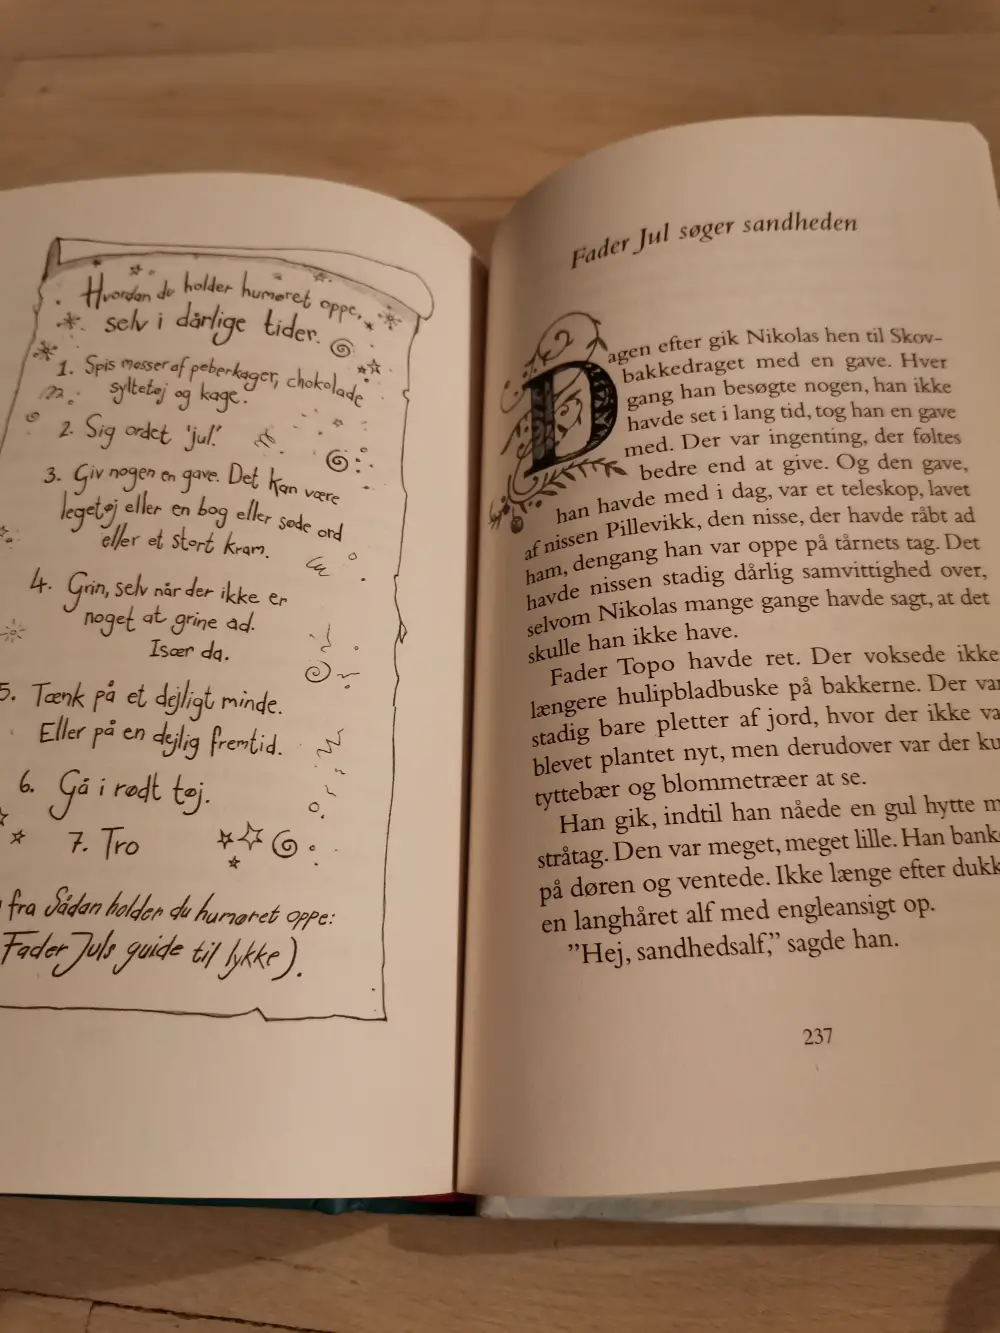 Hvordan du holder humøret oppe,
selv i dårlige tider.
1. Spis masser af peberkager, chokolade
syltetøj og kage.
2. Sig ordet 'jul'.
3. Giv nogen en gave. Det kan være
legetøj eller en bog eller søde ord
eller et stort kram.
4. Grin, selv når der ikke er
noget at grine ad.
Især da.
5. Tænk på et dejligt minde.
Eller på en dejlig fremtid.
6. Gå i rødt tøj.
7. Tro
fra Sådan holder du humøret oppe:
Fader Juls guide til lykke).
Fader Jul søger sandheden
Dagen efter gik Nikolas hen til Skov-
bakkedraget med en gave. Hver
gang han besøgte nogen, han ikke
havde set i lang tid, tog han en gave
med. Der var ingenting, der føltes
bedre end at give. Og den gave,
han havde med i dag, var et teleskop, lavet
af nissen Pillevikk, den nisse, der havde råbt ad
ham, dengang han var oppe på tårnets tag. Det
havde nissen stadig dårlig samvittighed over,
selvom Nikolas mange gange havde sagt, at det
skulle han ikke have.
Fader Topo havde ret. Der voksede ikke
længere hulipbladbuske på bakkerne. Der var
stadig bare pletter af jord, hvor der ikke va
blevet plantet nyt, men derudover var der ku
tyttebær og blommetræer at se.
Han gik, indtil han nåede en gul hytte m
stråtag. Den var meget, meget lille. Han bank
på døren og ventede. Ikke længe efter dukk
en langhåret alf med engleansigt op.
”Hej, sandhedsalf,” sagde han.
237